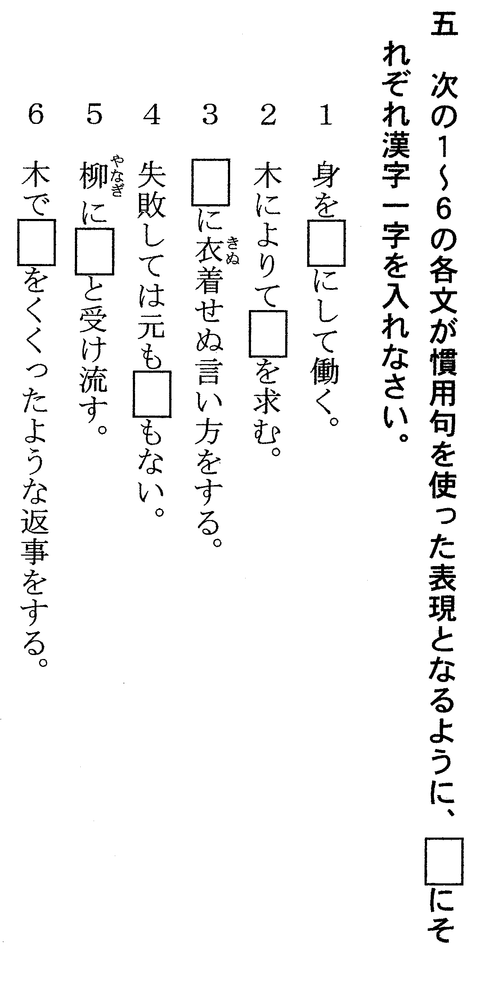 五　次の1～6の各文が慣用句を使った表現となるように、□にそ
れぞれ漢字一字を入れなさい。
1　身を□にして働く。
2　木によりて□を求む。
3　□に衣着せぬ言い方をする。
きぬ
4　失敗しては元も□もない。
5　柳に□と受け流す。
やなぎ
6　木で□をくくったような返事をする。